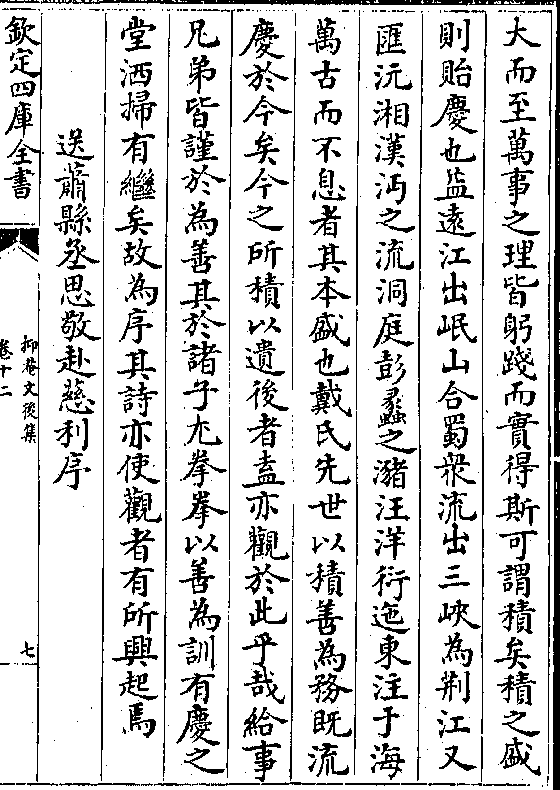 大而至萬事之理皆躬踐而實得斯可謂積矣積之盛
則貽慶也益遠江出岷山合蜀衆流出三峽為荆江又
匯沅湘漢沔之流洞庭彭蠡之瀦汪洋衍迤東注于海
萬古而不息者其本盛也戴氏先世以積善為務既流
慶於今矣今之所積以遺後者盍亦觀於此乎哉給事
兄弟皆謹於為善其於諸子尤拳拳以善為訓有慶之
堂洒掃有繼矣故為序其詩亦使觀者有所興起焉
送蕭縣丞思敬赴慈利序
欽定四庫全書
抑菴文後集
卷十二
七